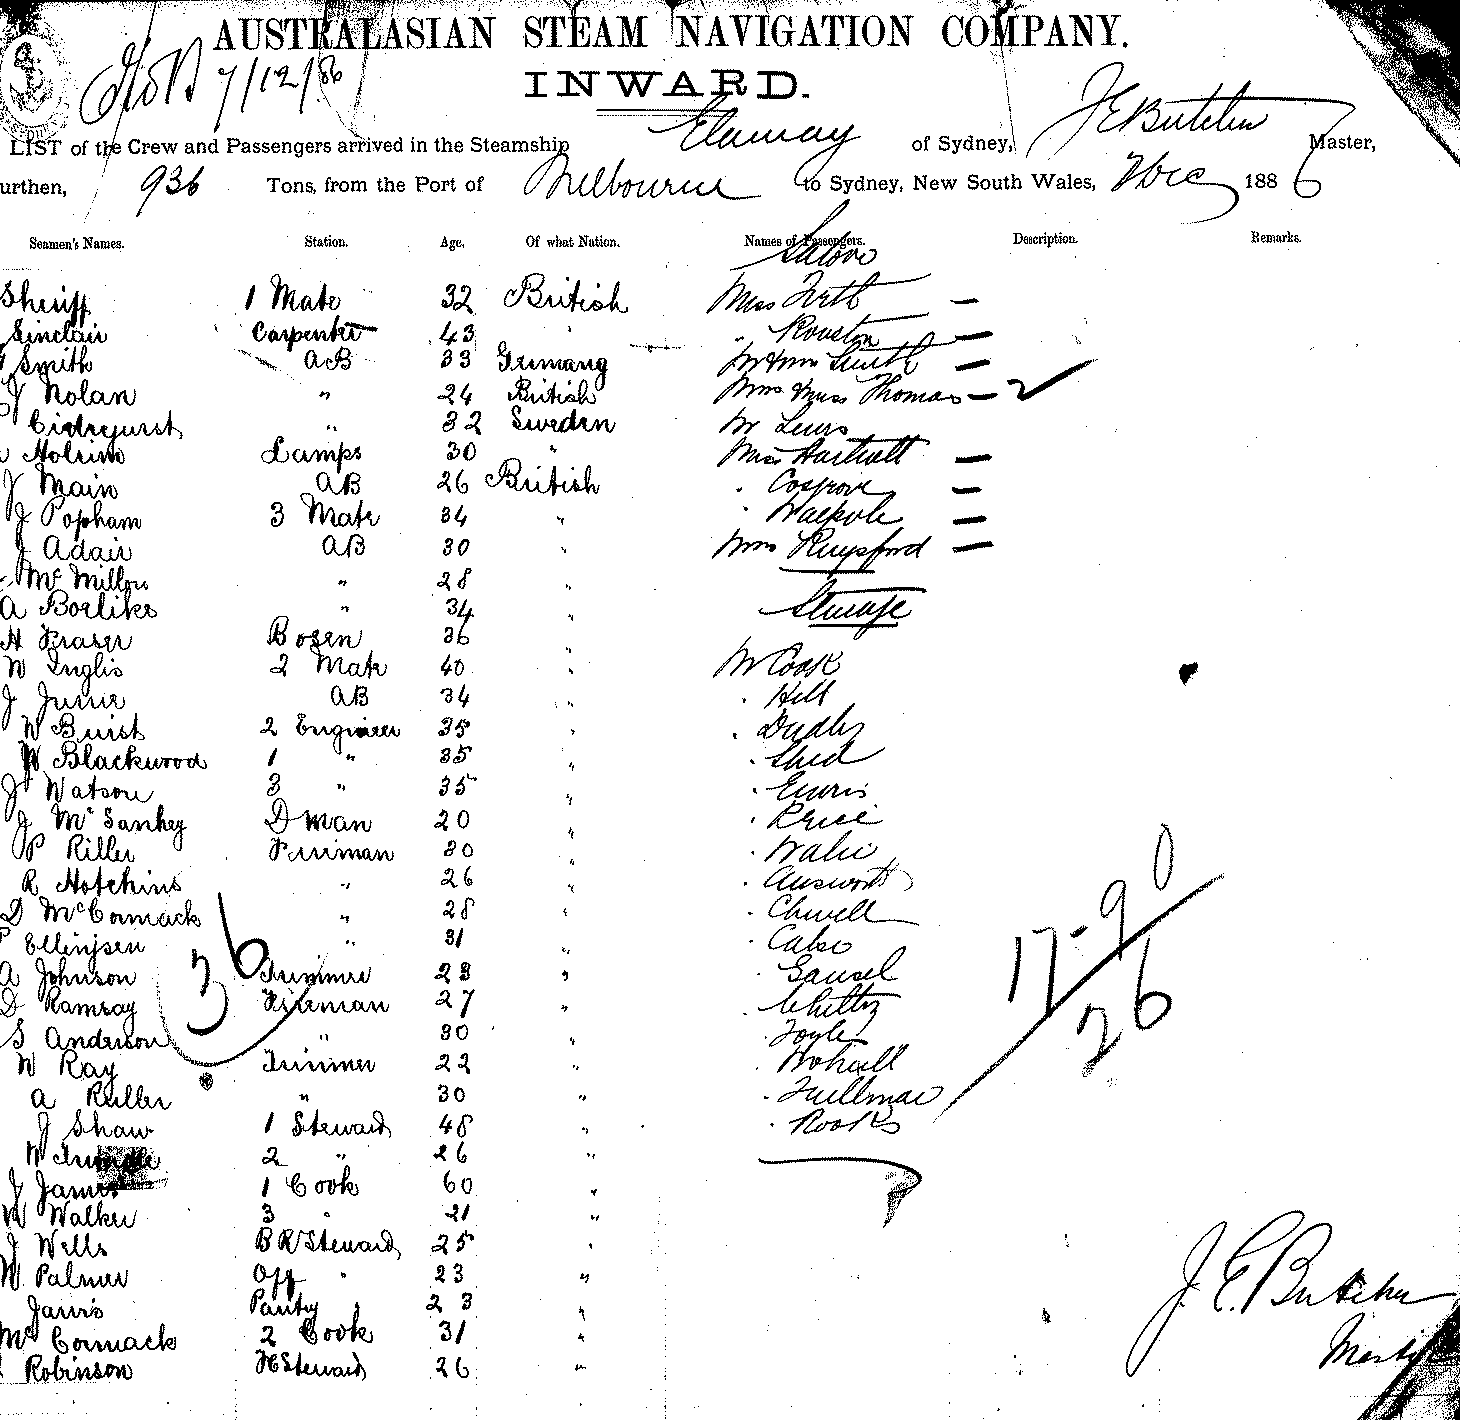 AUSTRALASIAN STEAM NAVIGATION COMPANY.
7/12/86
INWARD.
LIST of the Crew and Passengers arrived in the Steamship Elamay of Sydney, J E Butcher Master,
urthen, 936 Tons, from the Port of Melbourne to Sydney, New South Wales, 7 Dec 1886
Seamen's Names. Station. Age. Of what Nation. Names of Passengers. Description. Remarks.
Saloon
Sheriff 1 Mate 32 British Miss Firth —
Sinclair Carpenter 43 " " —
Smith AB 33 Germany Mr & Mrs Smith —
J Nolan " 24 British Mrs & Miss Thomas —
" 32 Sweden Mr Lewis
Holrim Lamps 30 " Miss —
J Main AB 26 British " Cosgrove —
J Popham 3 Mate 34 " " Walpole —
J Adair AB 30 " Mrs —
McMillan " 28 "
A " 34 " Steerage
H Fraser Bosen 36 "
W Inglis 2 Mate 40 " Mr Cook
J AB 34 " " Hill
W Buist 2 Engineer 35 " " Dudley
W Blackwood 1 " 35 " " Shed
J Watson 3 " 35 " "
J McSankey D man 20 " " Price
P Riller Fireman 30 " "
R Hotchins " 26 " " Ausworth
D McCormack " 28 " "
Ellingsen " 31 " "
A Johnson Trimmer 23 " "
D Ramsay Fireman 27 " " Chitty
S Anderson " 30 " " Foyle
W Ray Trimmer 22 " "
A Ruller " 30 " "
J Shaw 1 Steward 48 " " Rooks
W 2 " 26 "
J James 1 Cook 60 "
W Walker 3 " 21 "
J Wells B R Steward 25 "
W Palmer Off " 23 "
Jarvis Pantry 23 "
McCormack 2 Cook 31 "
Robinson F C Steward 26 "
36
17-90
26
J. E. Butcher
Master